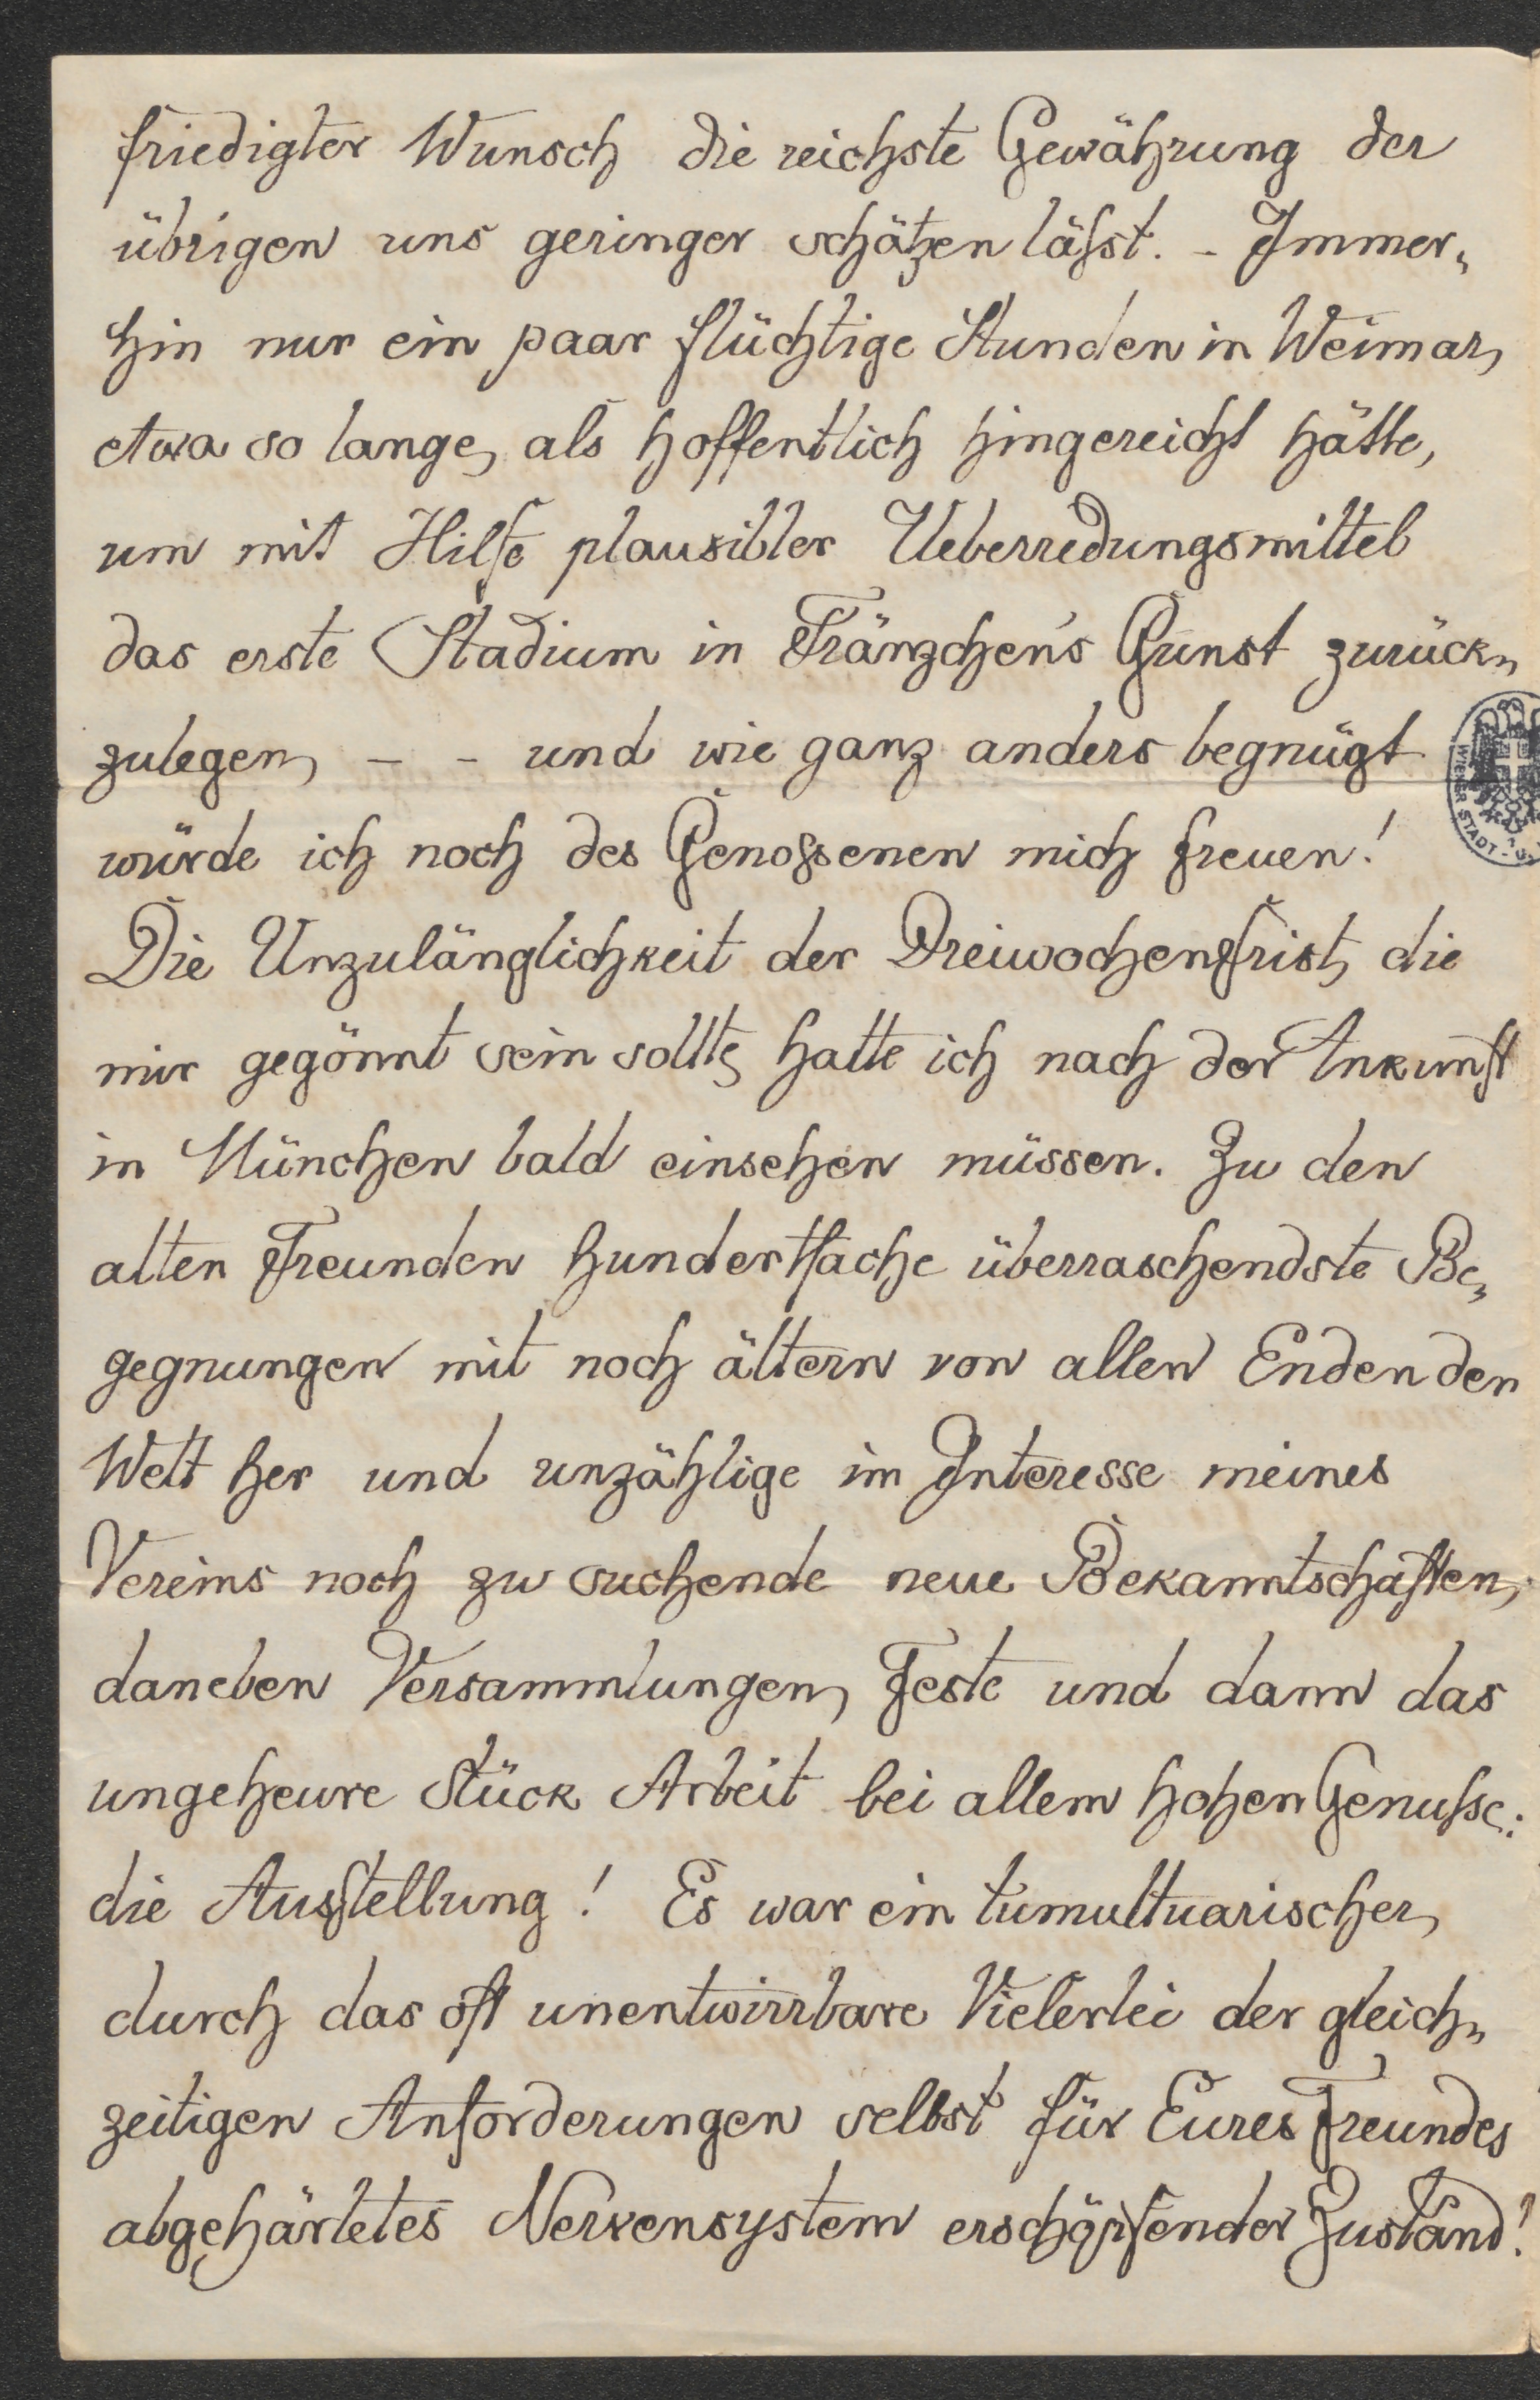 friedigter Wunsch die reichste Gewährung der
übrigen uns geringer schätzen läßt. - Immer„
hin nur ein paar flüchtige Stunden in Weimar,
etwa so lange, als hoffentlich hingereicht hätte,
um mit Hilfe plausibler Ueberredungsmittel
das erste Stadium in Fränzchen's Gunst zurück„
zulegen, - - und wie ganz anders begnügt
würde ich noch des Genoßenen mich freuen!
Die Unzulänglichkeit der Dreiwochenfrist, die
mir gegönnt sein sollte, hatte ich nach der Ankunft
in München bald einsehen müssen. Zu den
alten Freunden hundertfache überraschendste Be„
gegnungen mit noch ältern von allen Enden der
Welt her und unzählige im Interesse meines
Vereins noch zu suchende neue Bekanntschaften,
daneben Versammlungen, Feste und dann das
ungeheure Stück Arbeit bei allem hohen Genuße:
die Ausstellung! Es war ein tumultuarischer,
durch das oft unentwirrbare Vielerlei der gleich„
zeitigen Anforderungen selbst für Eures Freundes
abgehärtetes Nervensystem erschöpfender Zustand!
WIENER STADT-U.